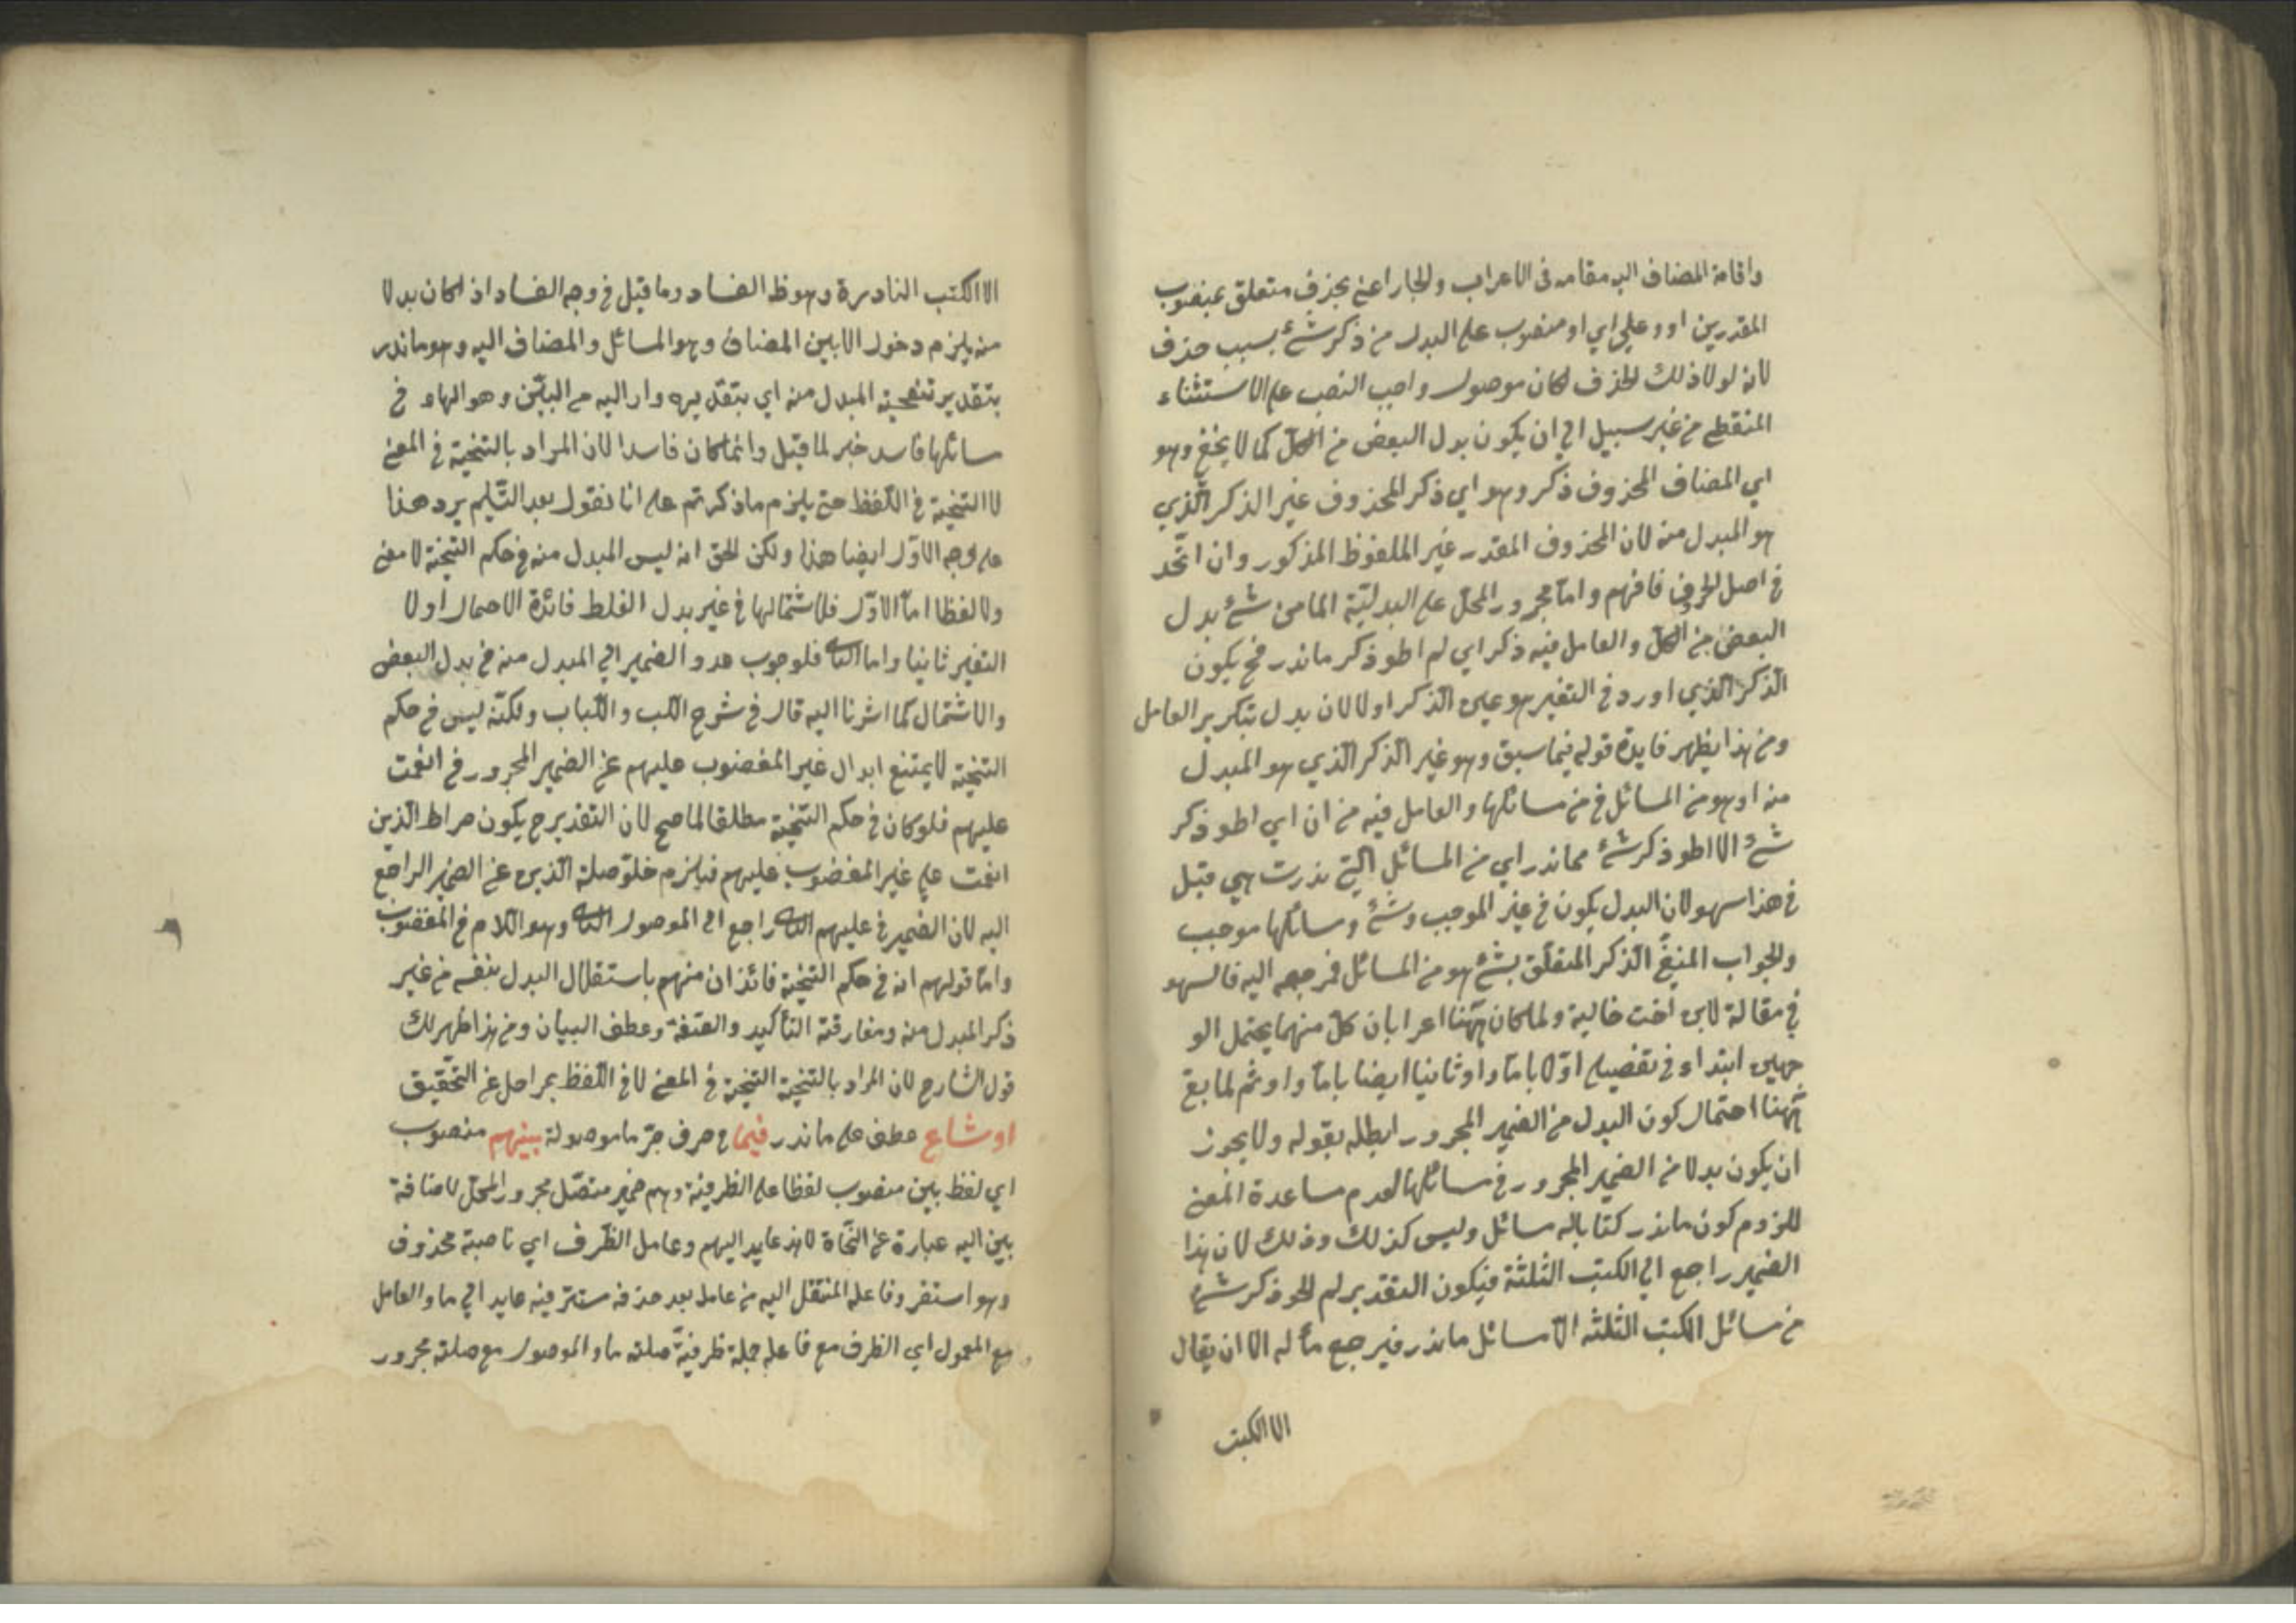 واقامة المضاف اليه مقامه فى الاعراب والجار اعنى بحذف متعلق بمنصوب
المقدرين او وعلى اي او منصوب على البدل من ذكر شئ بسبب حذف
لانه لولا ذلك الحذف لكان موصول واجب النصب على الاستثناء
المنقطع من غير سبيل الى ان يكون بدل البعض من الكل كما لا يخفى وهو
اي المضاف المحذوف ذكر وهو اي ذكر المحذوف غير الذكر الّذي
هو المبدل منه لان المحذوف المقدر غير الملفوظ المذكور وان اتّحد
في اصل الحروف فافهم وامّا مجرور المحلّ على البدليّة من شئ بدل
البعض من الكلّ والعامل فيه ذكر اي لم اطو ذكر ما ندر فح يكون
الذكر الّذي اورد في التفير هو عين الذكر اولا لان بدل بتكرير العامل
ومن هذا يظهر فايدة قوله فيما سبق وهو غير الذكر الّذي هو المبدل
منه او هو من المسائل في من مسائلها والعامل فيه من ان اي اطو ذكر
شئ الا اطو ذكر شئ مما ندر اي من المسائل الّتي ندرت هي قيل
في هذا سهو لان البدل يكون في غير الموجب وشئ ومسائلها موجب
والجواب المنفيّ الذكر المتعلّق بشئ هو من المسائل فمرجعه اليه فالسهو
في مقالة لابن اخت خالية ولما كان ههنا اعرابان كلّ منهما يحتمل الو
جهين ابتداء في تفصيله اوّلا بامّا واو ثانيا ايضا بامّا واو ثم لما بقى
ههنا احتمال كون البدل من الضمير المجرور ابطله بقوله ولا يجوز
ان يكون بدلا من الضمير المجرور في مسائلها لعدم مساعدة المعنى
للزوم كون ما ندر كتابا له مسائل وليس كذلك وذلك لان هذا
الضمير راجع الى الكتب الثلثة فيكون التقدير لم اطو ذكر شئ
من مسائل الكتب الثلثه الّا مسائل ما ندر فيرجع مأله الا ان يقال
الا الكتب
الا الكتب النادرة وهو ظ الفساد وما قيل في وجه الفساد اذ لو كان بدلا
منه يلزم دخول الا بين المضاف وهو المسائل والمضاف اليه وهو ما ندر
بتقدير تنحية المبدل منه اي بتقدير وار اليه من البيّن وهو الهاء في
مسائلها فاسد خبر لما قيل وانما كان فاسدا لان المراد بالتنحية في المعنى
لا التنحية في اللفظ حتى يلزم ما ذكرتم على انا نقول بعد التسليم يرد هذا
على الوجه الاوّل ايضا هذا ولكن الحق انه ليس المبدل منه في حكم التنحية لا معنى
ولا لفظا امّا الاوّل فلاشتمالها في غير بدل الغلط فائدة الاجمال اولا
التفير ثانيا واما الثانى فلوجوب عود الضمير الى المبدل منه في بدل البعض
والاشتمال كما اشرنا اليه قال في شرح اللب واللّباب ولكنّه ليس في حكم
التنحية لا يمتنع ابدال غير المغضوب عليهم عن الضمير المجرور في انعمت
عليهم فلو كان في حكم التنحية مطلقا لما صح لان التقدير ح يكون صراط الّذين
انعمت على غير المغضوب عليهم فيلزم خلوّ صلة الّذين عن الضمير الراجع
اليه لان الضمير في عليهم الثانى راجع الى الموصول الثانى وهو اللام في المغضوب
وامّا قولهم انه في حكم التنحية فائذان منهم باستقلال البدل بنفسه من غير
ذكر المبدل منه ومفارقته التأكيد والصّفة وعطف البيان ومن هذا ظهر لك
قول الشارح لان المراد بالتنحية التنحية في المعنى لا في اللّفظ بمراحل عن التحقيق
او شاع عطف على ما ندر فيما في حرف جرّ ما موصولة بينهم منصوب
اي لفظ بين منصوب لفظا على الظرفية وهم ضمير متصّل مجرور المحلّ لاضافة
بين اليه عبارة عن النّحاة لانه عايد اليهم وعامل الظّرف اي ناصبة محذوف
وهو استقر وفاعله المنتقل اليه من عامله بعد حذفه مستتر فيه عايد الى ما والعامل
مع المعمول اي الظرف مع فاعله جملة ظرفيّة صلته ما والموصول مع صلته مجرور